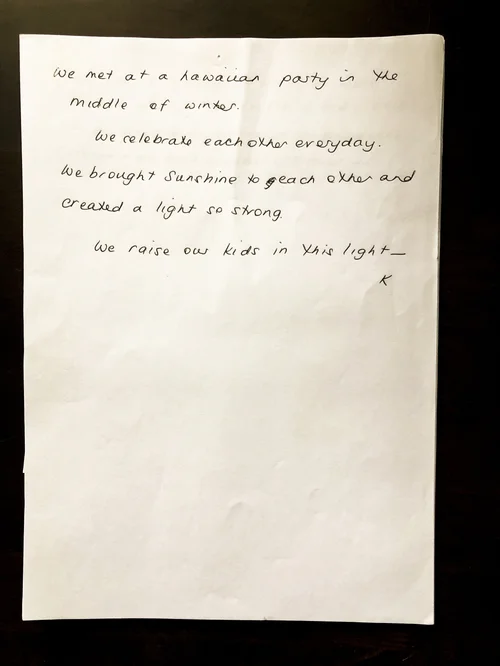 We met at a hawaiian party in the
middle of winter.
We celebrate each other everyday.
We brought sunshine to each other and
created a light so strong.
We raise our kids in this light—
K